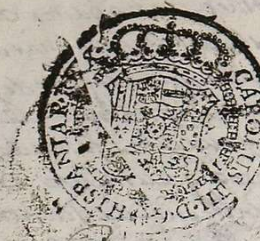 CAROLUS IIII D G HISPANIAR R